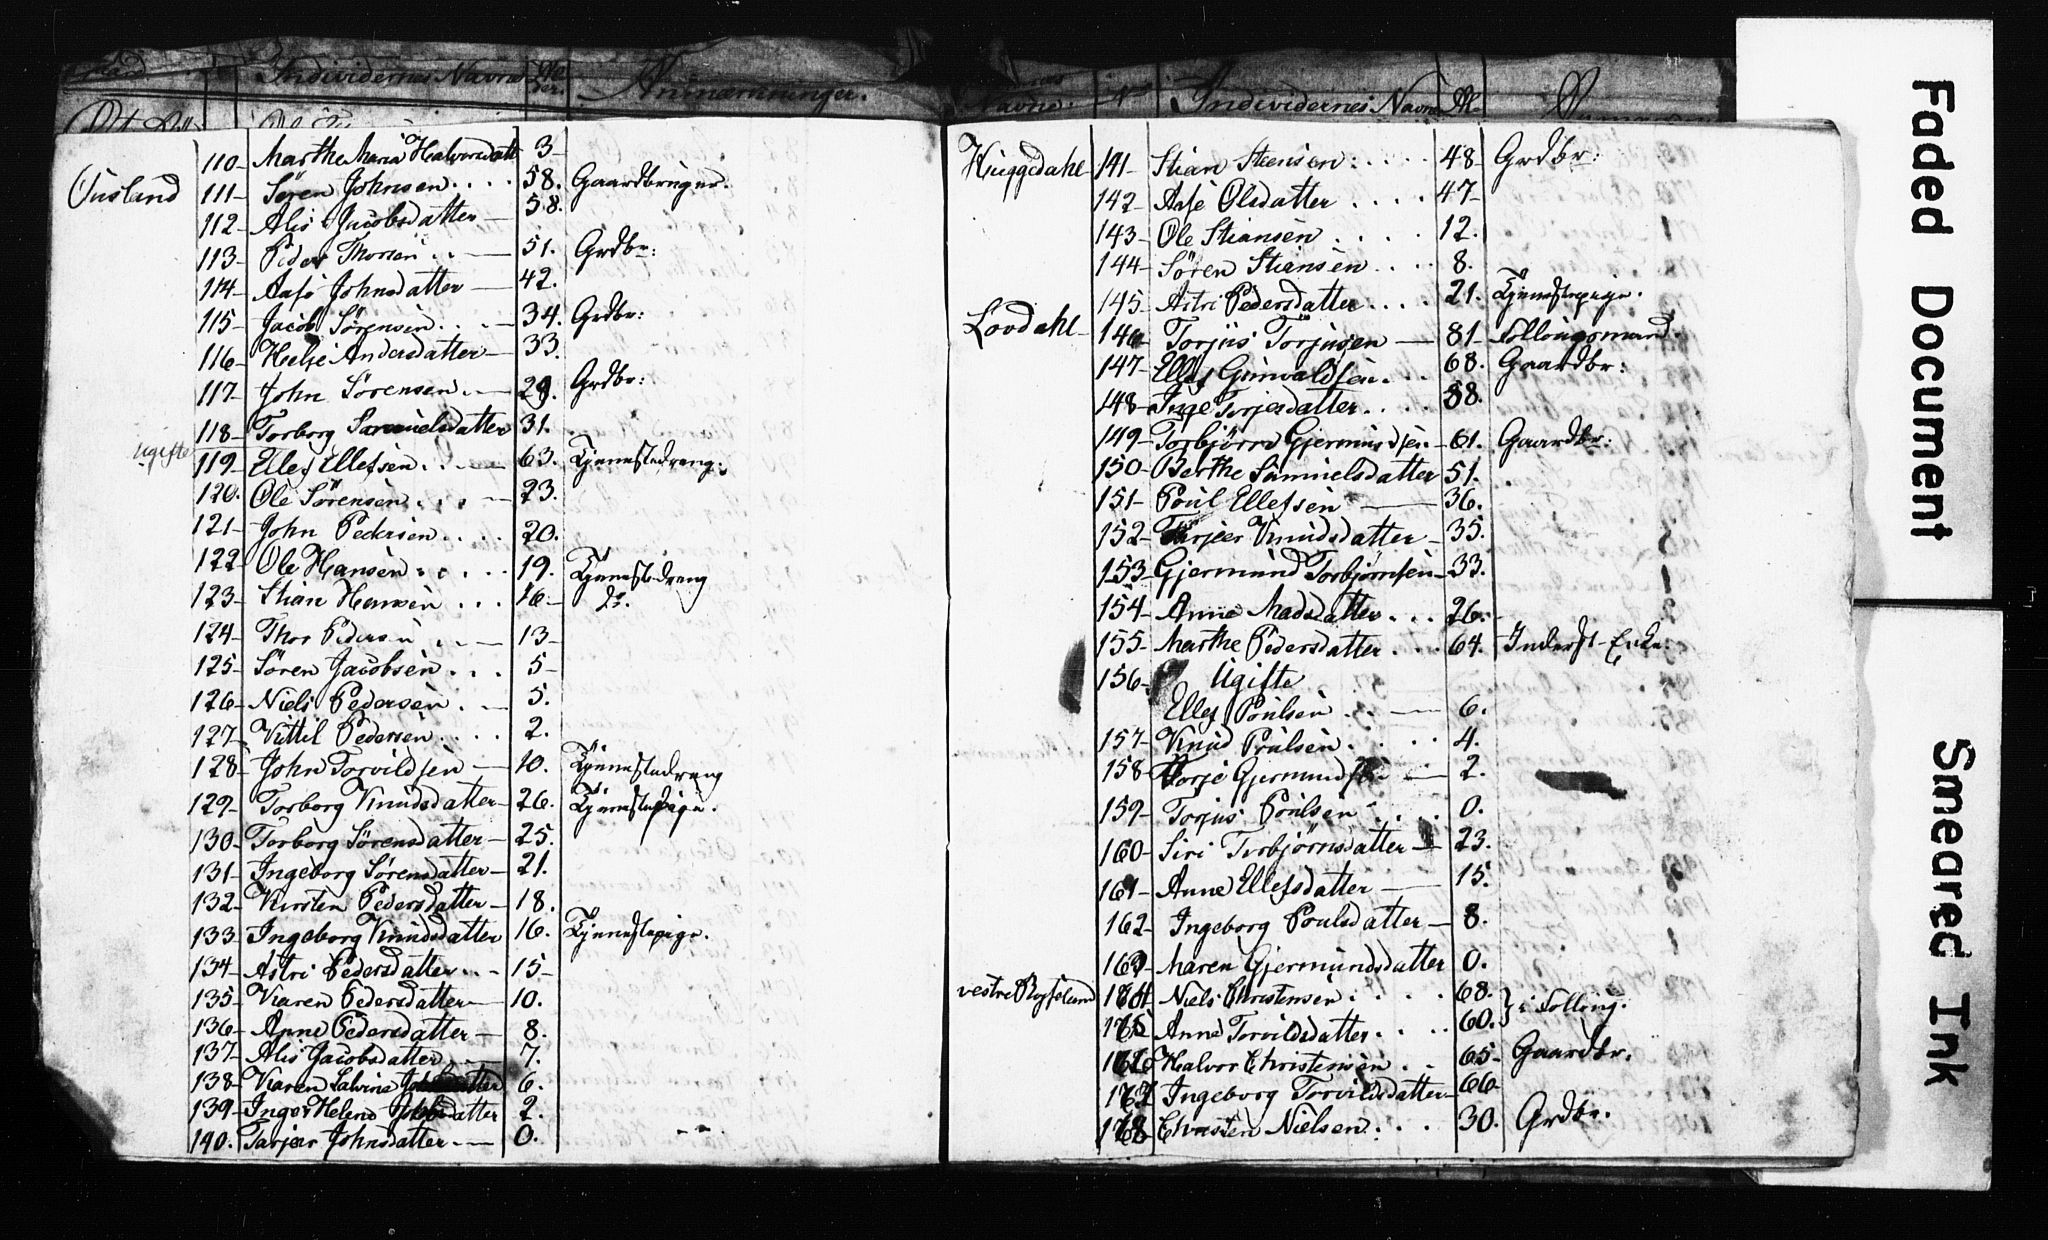 Individernes Navne
Anmærkninger.
110- Marthe Maria Halvorsdatt 3-
Ousland 111- Sören Johnsen .... 58. Gaardbruger.
112- Alis Jacobsdatter - 58.
113- Peder Thorsen .. - 51. Grdbr:
114- Aase Johnsdatter - 42.
115- Jacob Sørensen . . - 34. Grdbr:
116- Helje Andersdatter - 33.
117- John Sørensen . - 29. Grdbr:
118- Torborg Samuelsdatter 31.
ugifte
119- Ellef Ellefsen . . - 63. Tjenestedreng.
120. Ole Sörensen . . . - 23.
121- John Pedersen .... 20.
122- Ole Hansen . . . . . 19. Tjenestedreng
123- Stian Hansen . . . 16- Do.
124- Thor Pedersen .. - 13-
125- Sören Jacobsen . . . 5-
126- Niels Pedersen . - 5.
127- Kittil Pedersen .... 2.
128- John Torvildsen - 10. Tjenestedreng
129- Torborg Knudsdatter - 26. Tjenestepige.
130- Torborg Sörensdatter - 25.
131- Ingeborg Sörensdatter - 21.
132- Kirsten Pedersdatter - 18.
133- Ingeborg Knudsdatter 16. Tjenestepige.
134- Astri Pedersdatter . . 15-
135- Karen Pedersdatter - 10.
136- Anne Pedersdatter - 8.
137- Alis Jacobsdatter . - 7.
138- Karen Lalvine 6.
139- Inger Helene Johnsdatter 2.
140. Tarjer Johnsdatter . - 0.
Navne: N Individernes Navne
Huggdahl 141- Stian Steensen . .... 48- Grdbr:
142- Aase Olsdatter .... 47-
143- Ole Stiansen .... 12.
144- Sören Stiansen .... 8.
145- Astri Pedersdatter .... 21. Tjenestepige.
Lovdahl 146 Torjus Torjusen - 81- Follougsmand.
147- Ellef Gunvaldsen ... 68. Gaardbr:
148- Inge Torjesdatter .... 58.
149- Torbjörn Gjermundsen - 61. Gaardbr:
150- Berthe Samuelsdatter 51.
151- Poul Ellefsen - 36.
152- Tarjer Knudsdatter - 35.
153- Gjermund Torbjørnsen - 33.
154- Anne Madsdatter ... 26.
155- Marthe Pedersdatter ... 64. Inderst- Enke:
156- Ugifte
Ellef Poulsen . . - 6.
157- Knud Poulsen .... 4.
158 Torje Gjermundsen - 2.
159- Torjus Poulsen .... 0.
160- Siri Torbjørnsdatter - 23.
161- Anne Ellefsdatter - 15.
162- Ingeborg Poulsdatter - 8.
163- Maren Gjermundsdatter 0.
vestre 164 Niels Christensen .... 68. } i Folloug.
165 Anne Torvildsdatter .... 60.
166 Halvor Christensen .. 65- Gaardbr.
167 Ingeborg Torvildsdatter - 66
168 Christen Nielsen .... 30. Grdbr.
Faded Document
Smeared Ink